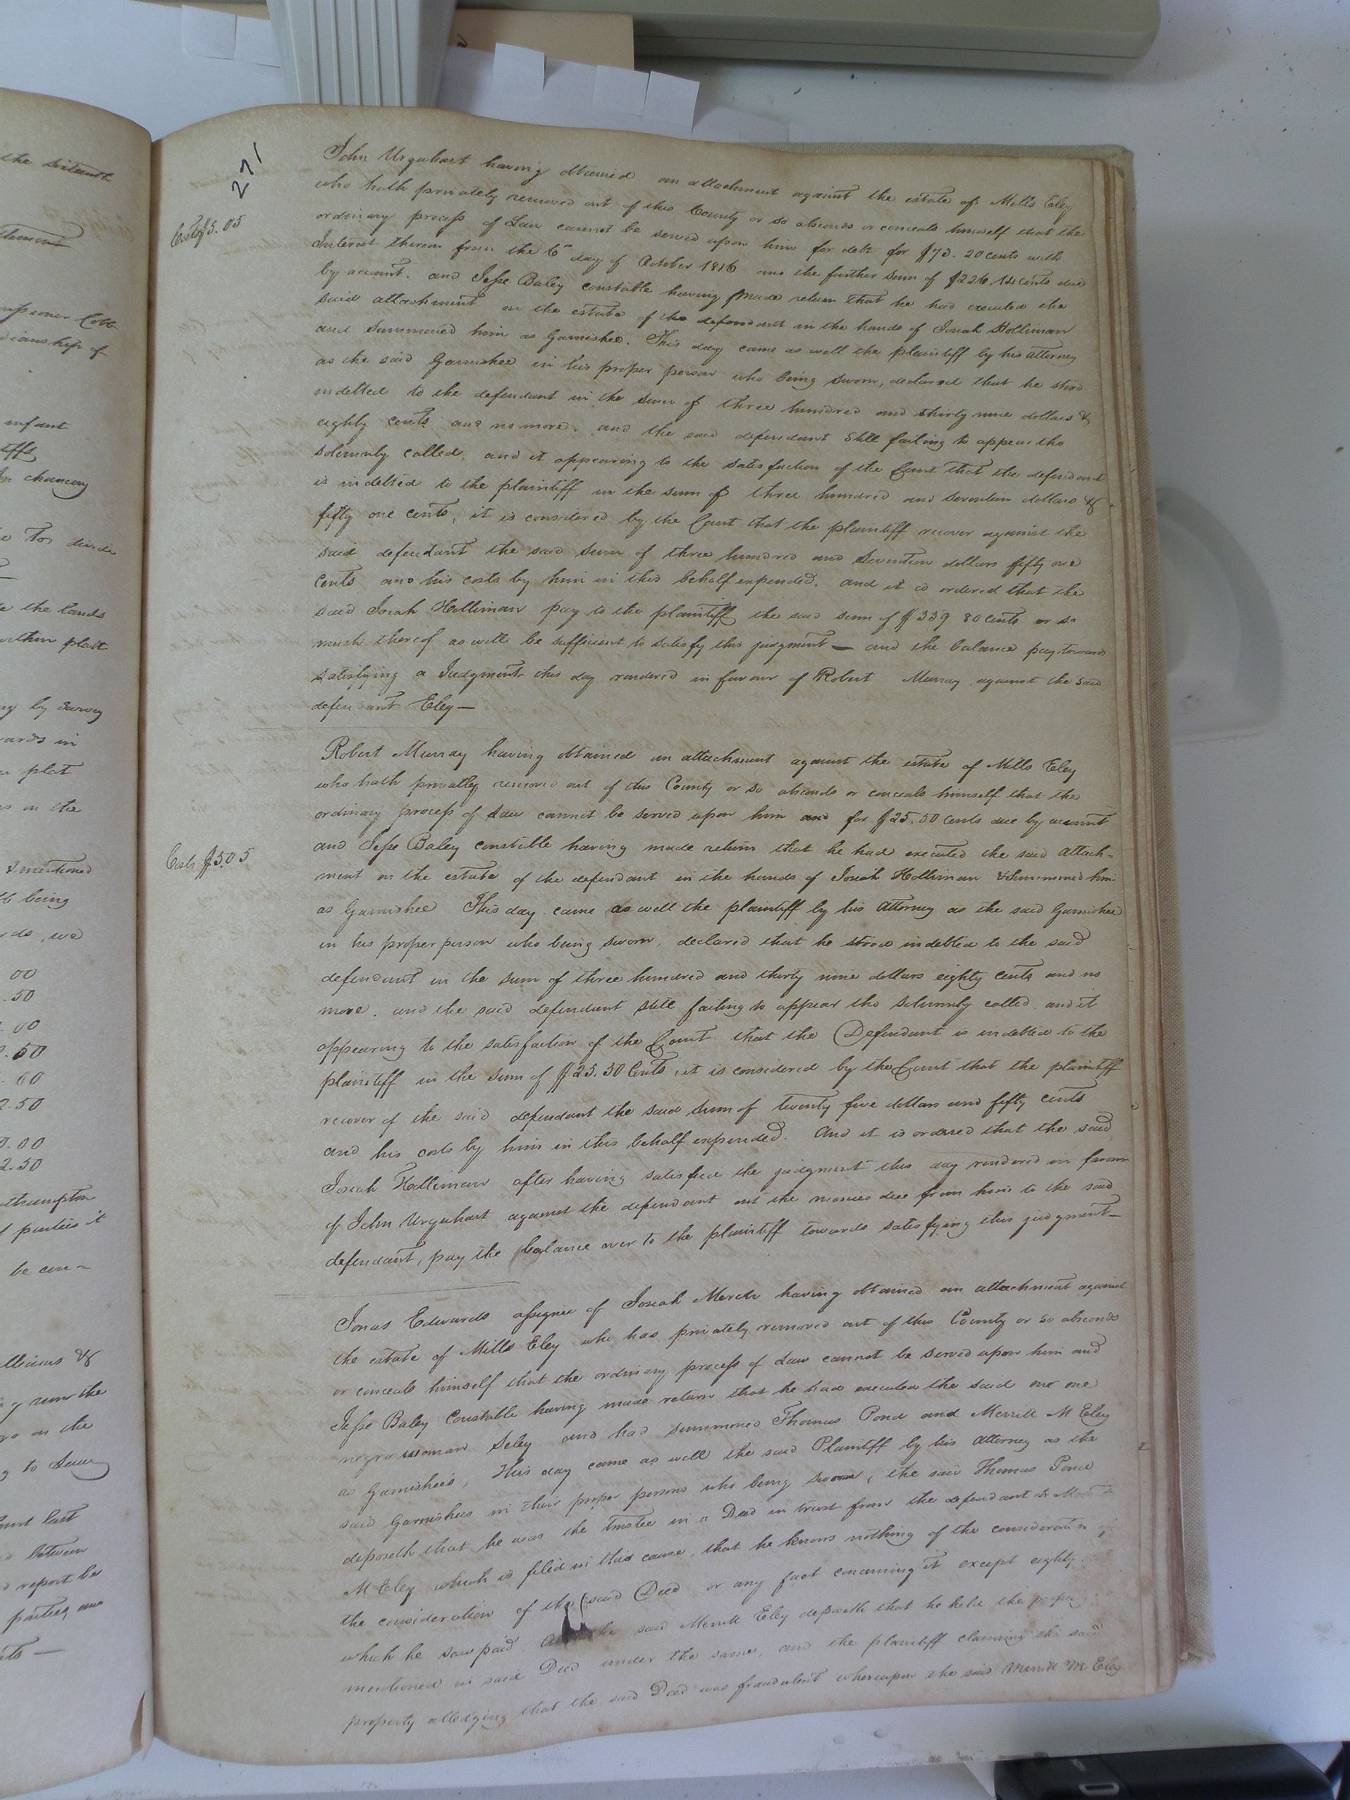 the sixteenth
infant
In chancery
the lands
within platt
by Survey
plat
on the
mentioned
being
00
.50
.00
.50
.60
2.50
.00
2.50
parties it
be con-
run the
on the
last
between
report be
parties and
271
Costs $5.05
John Urquhart having obtained an attachment against the estate of Mills Eley
who hath privately removed out of this County or so absconds or conceals himself that the
ordinary process of Law cannot be served upon him for debt for $73.20 cents with
Interest thereon from the 6th day of October 1816 and the further sum of $226.14 cents due
by account. and Jesse Baley constable having made return that he had executed the
said attachment on the estate of the defendant in the hands of Josiah Holliman
and summoned him as Garnishee. This day came as well the plaintiff by his attorney
as the said Garnishee in his proper person who being sworn, declared that he stood
indebted to the defendant in the sum of three hundred and thirty nine dollars &
eighty cents and no more. and the said defendant still failing to appear tho
solemnly called. and it appearing to the satisfaction of the Court that the defendant
is indebted to the plaintiff in the sum of three hundred and seventeen dollars &
fifty one cents, it is considered by the Court that the plaintiff recover against the
said defendant the said sum of three hundred and seventeen dollars fifty one
Cents and his costs by him in this behalf expended. and it is ordered that the
said Josiah Holliman pay to the plaintiff the said sum of $339 80 cents or so
much thereof as will be sufficient to satisfy this judgment — and the balance pay toward
satisfying a Judgment this day rendered in favour of Robert Murray against the said
defendant Eley —
Robert Murray having obtained an attachment against the estate of Mills Eley
who hath privatley removed out of this County or so absconds or conceals himself that the
ordinary process of Law cannot be served upon him and for $25.50 cents due by account
Costs $5.05
and Jesse Baley constable having made return that he had executed the said attach-
ment on the estate of the defendant in the hands of Josiah Holliman & Summoned him
as Garnishee This day came as well the plaintiff by his attorney as the said Garnishee
in his proper person who being sworn, declared that he stood indebted to the said
defendant in the sum of three hundred and thirty nine dollars eighty cents and no
more. and the said defendant still failing to appear tho solemnly called and it
appearing to the satisfaction of the Court that the Defendant is indebted to the
plaintiff in the sum of $25.50 Cents, it is considered by the Court that the plaintiff
recover of the said defendant the said sum of twenty five dollars and fifty cents
and his costs by him in this behalf expended. And it is ordered that the said
Josiah Holliman after having satisfied the judgment this day rendered in favour
of John Urquhart against the defendant out the monies due from him to the said
defendant, pay the balance over to the plaintiff towards satisfying this judgment —
Jonas Edwards assignee of Josiah Merch having obtained an attachment against
the estate of Mills Eley who has privately removed out of this County or so absconds
or conceals himself that the ordinary process of Law cannot be served upon him and
Jesse Baley Constable having made return that he had executed the said on one
negro woman Seley and had summoned Thomas Pond and Merritt M Eley
as Garnishees, This day came as well the said Plaintiff by his attorney as the
said Garnishees in their proper persons who being sworn, the said Thomas Pond
deposeth that he was the trustee in a Deed in trust from the defendant to
M Eley which is filed in this cause, that he knows nothing of the consideration
the consideration of the said Deed or any fact concerning it except eighty
which he saw paid said Merritt Eley deposeth that he held the
mentioned in said Deed under the same, and the plaintiff claiming the said
property alledging that the said Deed was fraudulent whereupon the said Merritt M Eley